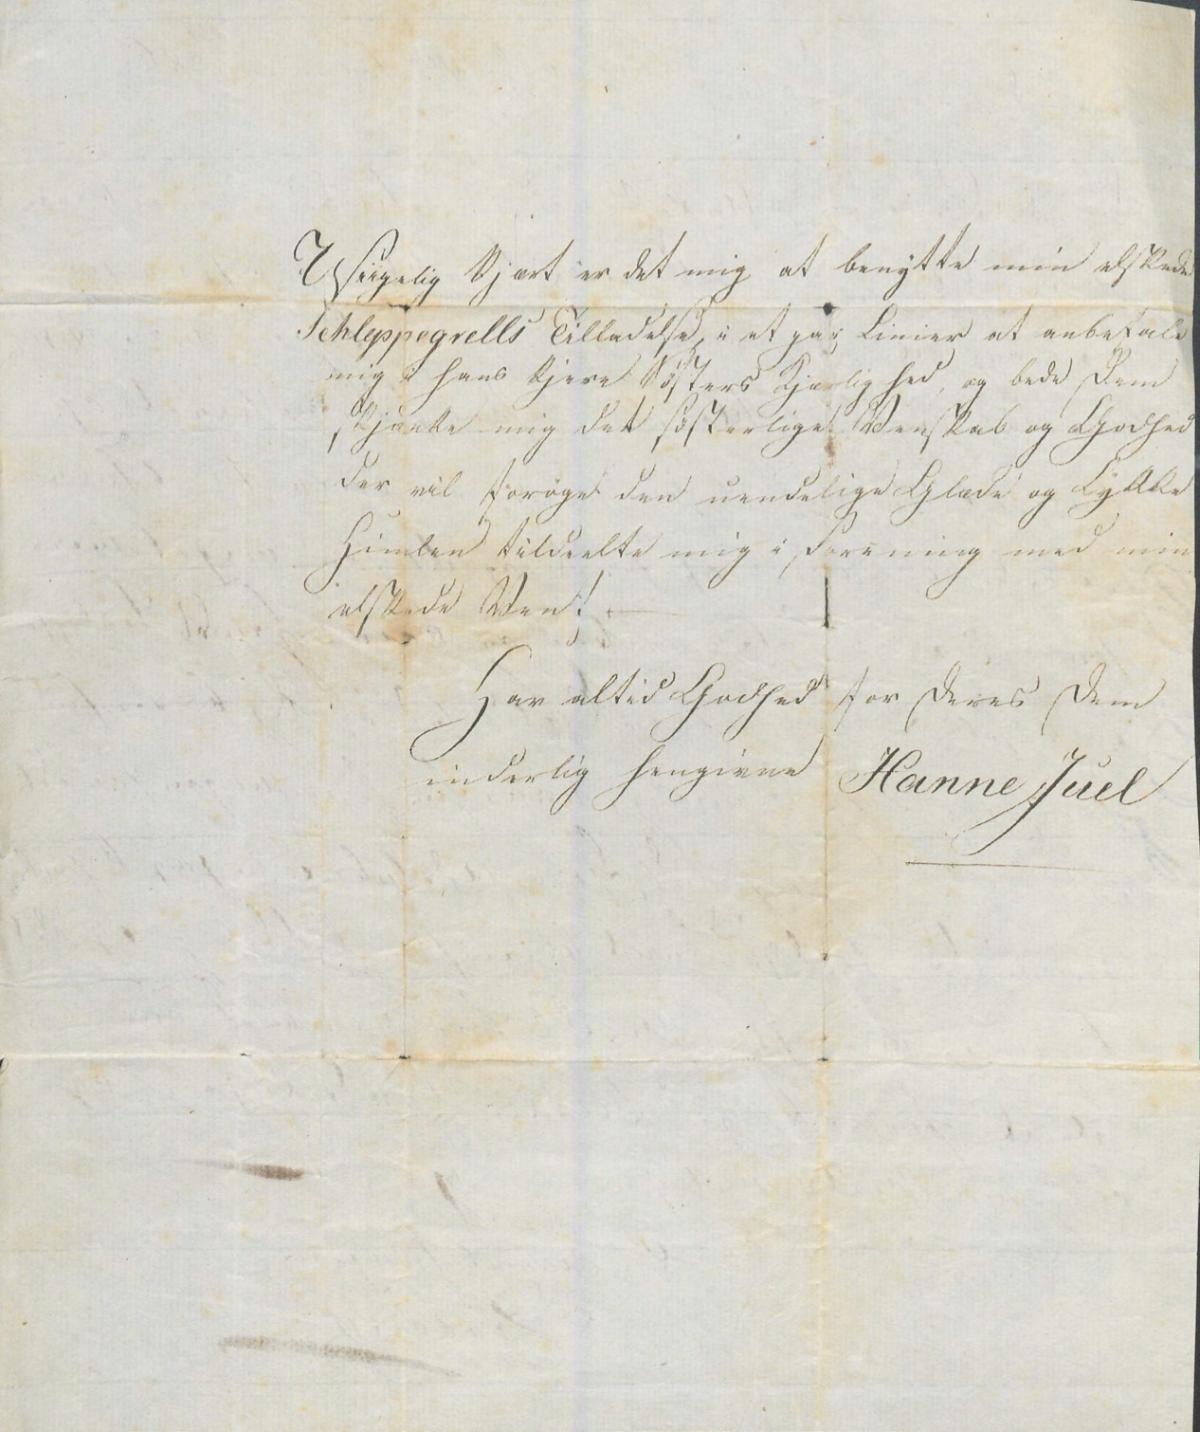 Usigelig kjært er det mig at benytte min elskede
Schleppegrells Tilladelse, i et par Linier at anbefale
mig i hans kjere Søsters Kjærlighed, og bede Dem
skjænke mig det søsterlige Venskab og Godhed
der vil forøge den uendelige Glæde og Lykke
Himlen tildeelte mig i Forening med min
elskede Ven! —
Hav altid Godhed for Deres Dem
inderlig hengivne Hanne Juel